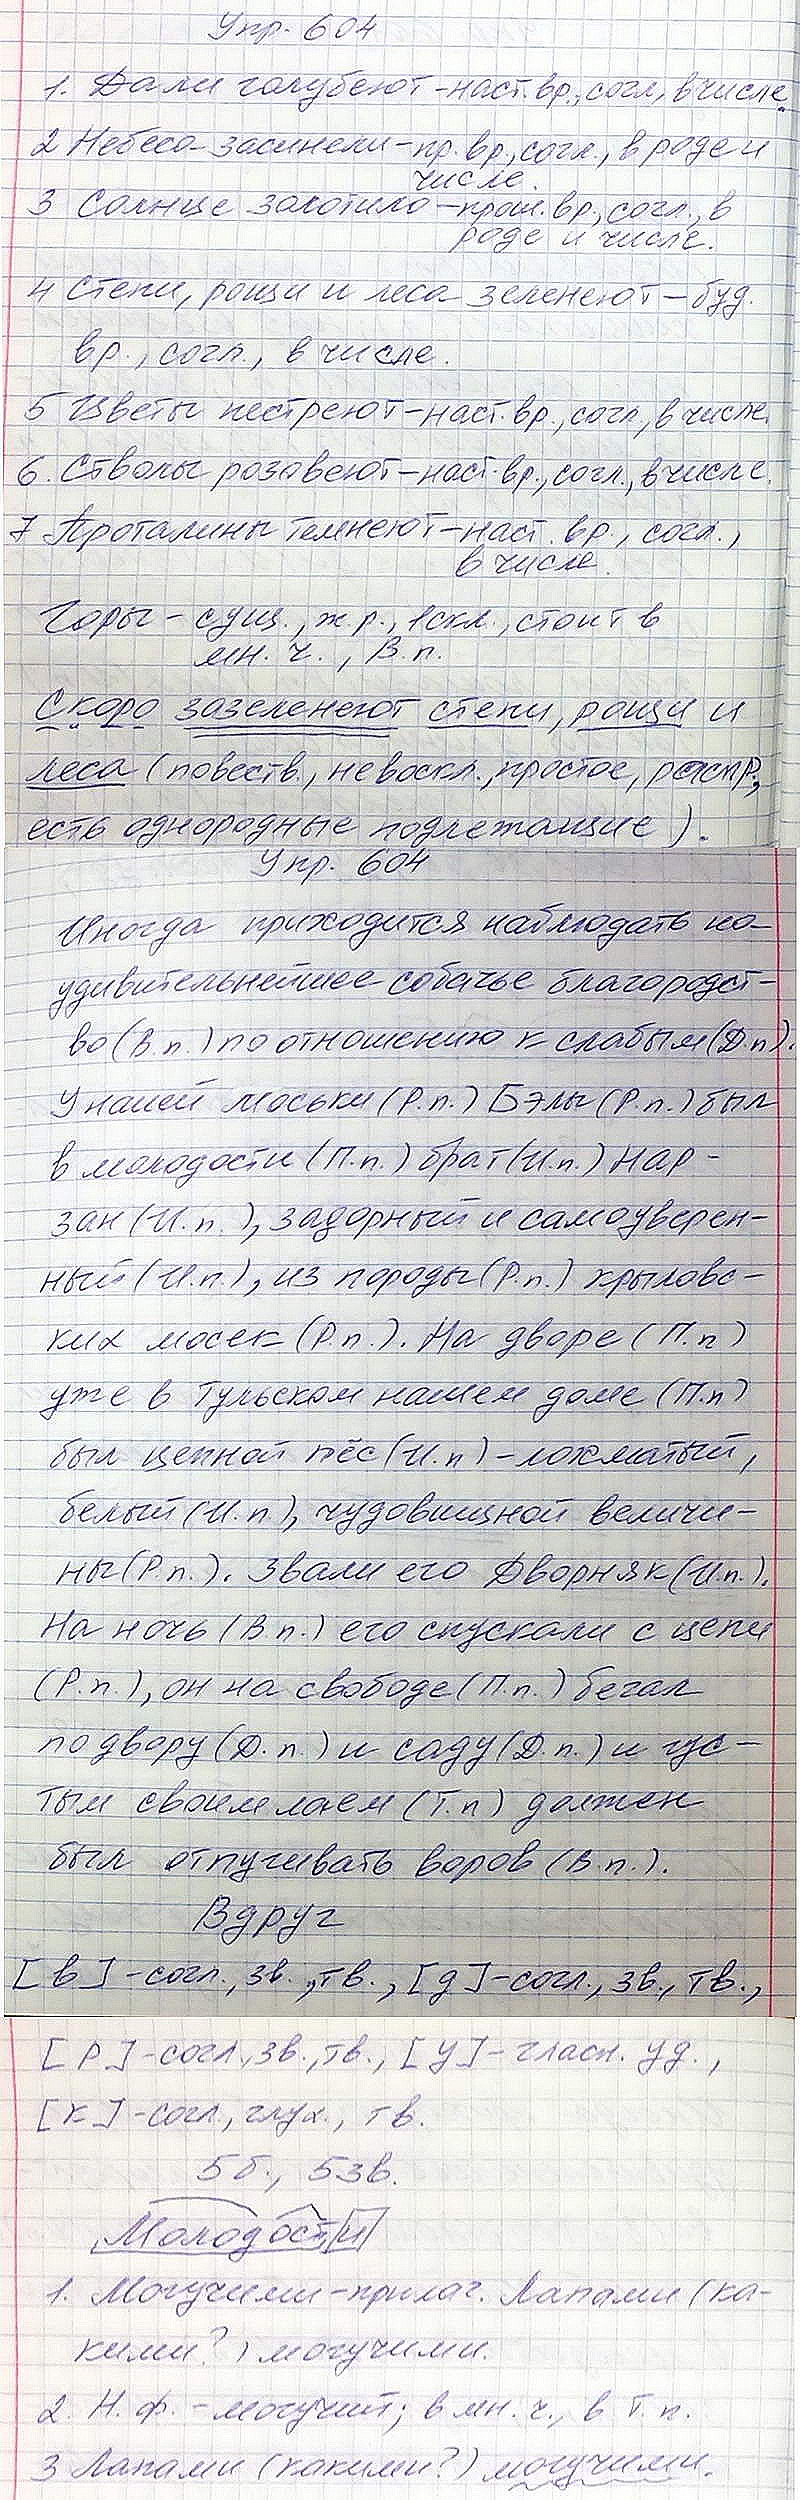 Упр. 604
1. Дали голубеют - наст. вр., согл, в числе.
2 Небеса засинели - пр. вр., согл., в роде и
числе.
3 Солнце золотило - прош. вр., согл., в
роде и числе.
4 Степи, рощи и леса зеленеют - буд.
вр., согл., в числе.
5 Цветы пестреют - наст. вр., согл, в числе.
6. Стволы розовеют - наст. вр., согл., в числе.
7 Проталины темнеют - наст. вр., согл.,
в числе.
Горы - сущ., ж р., 1 скл., стоит в
мн. ч., В.п.
Скоро зазеленеют степи, рощи и
леса (повеств., невоскл., простое, распр.,
есть однородные подлежащие).
Упр. 604
Иногда приходится наблюдать на-
удивительнейшее собачье благородст-
во (В.п.) по отношению к слабым (Д.п).
У нашей моськи (Р.п.) Бэлы (Р.п.) был
в молодости (П.п.) брат (И.п.) Нар-
зан (И.п.), задорный и самоуверен-
ный (И.п.), из породы (Р.п.) крыловс-
ких мосек (Р.п.). На дворе (П.п)
уже в Тульском нашем доме (П.п)
был цепной пёс (И.п) - лохматый,
белый (И.п), чудовищной величи-
ны (Р.п.). Звали его Дворняк (И.п.).
На ночь (В.п.) его спускали с цепи
(Р.п.), он на свободе (П.п.) бегал
по двору (Д.п.) и саду (Д.п.) и гус-
тым своим лаем (Т.п) должен
был отпугивать воров (В.п.).
Вдруг
[в] - согл., зв., тв., [д] - согл., зв., тв.,
[р] - согл., зв., тв., [у] - гласн. уд.,
[к] - согл., глух., тв.
5 б., 5 зв.
Молодости
1. Могучими - прилаг. Лапами (ка-
кими?) могучими.
2. Н. ф. - могучий; в мн. ч., в Т. п.
3 Лапами (какими?) могучими.